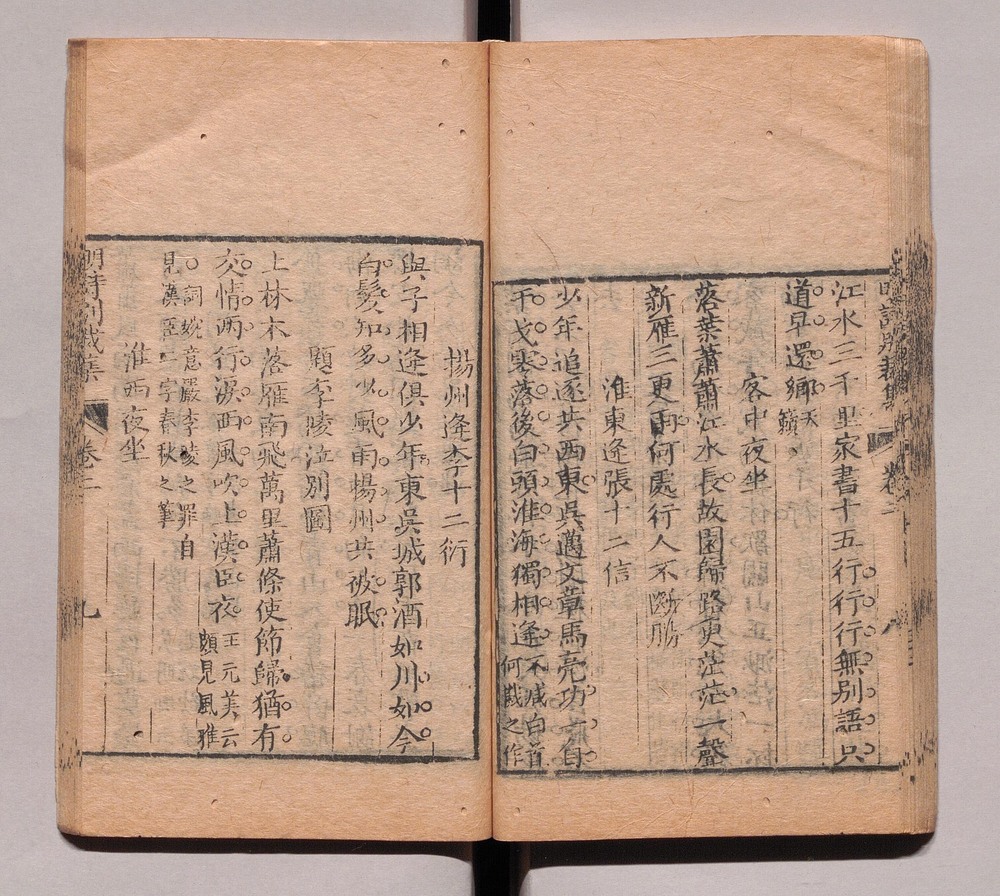 江水三千里家書十五行行行無別語只
道早還鄉天籟
客中夜坐
落葉蕭蕭江水長故園歸路更茫茫一聲
新雁三更雨何處行人不斷腸
淮東逢張十二信
少年追逐共西東吳邁文章馬亮功一自
干戈零落後白頭淮海獨相逢不減白首
何戡之作
揚州逢李十二衍
與子相逢俱少年東吳城郭酒如川如今
白髮知多少風雨揚州共被眠
題李陵泣別圖
上林木落雁南飛萬里蕭條使節歸猶有
交情兩行淚西風吹上漢臣衣王元美云
顯見風雅
○詞婉意嚴李陵之罪自
見漢臣二字春秋之筆
淮西夜坐
明詩別裁集
卷之二
九